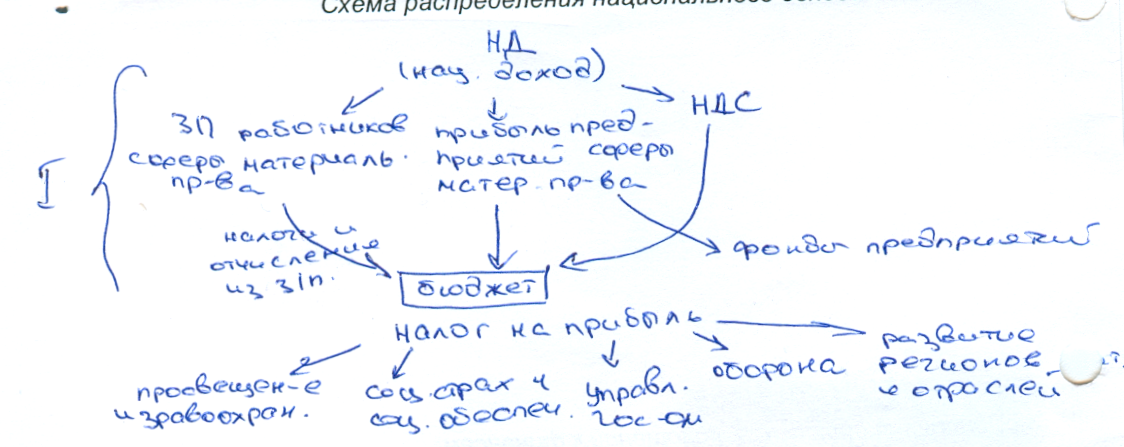 Схема распределения национального
НД
(нац. доход)
НДС
ЗП работников
сферы материальн.
пр-ва
прибыль пред-
приятий сферы
матер. пр-ва
I
налоги и
отчисления
из з/п.
фонды предприятий
бюджет
налог на прибыль
просвещен-е
и здравоохран.
соц. страх и
соц. обеспеч.
управл.
гос-ом
оборона
развитие
регионов
и отраслей